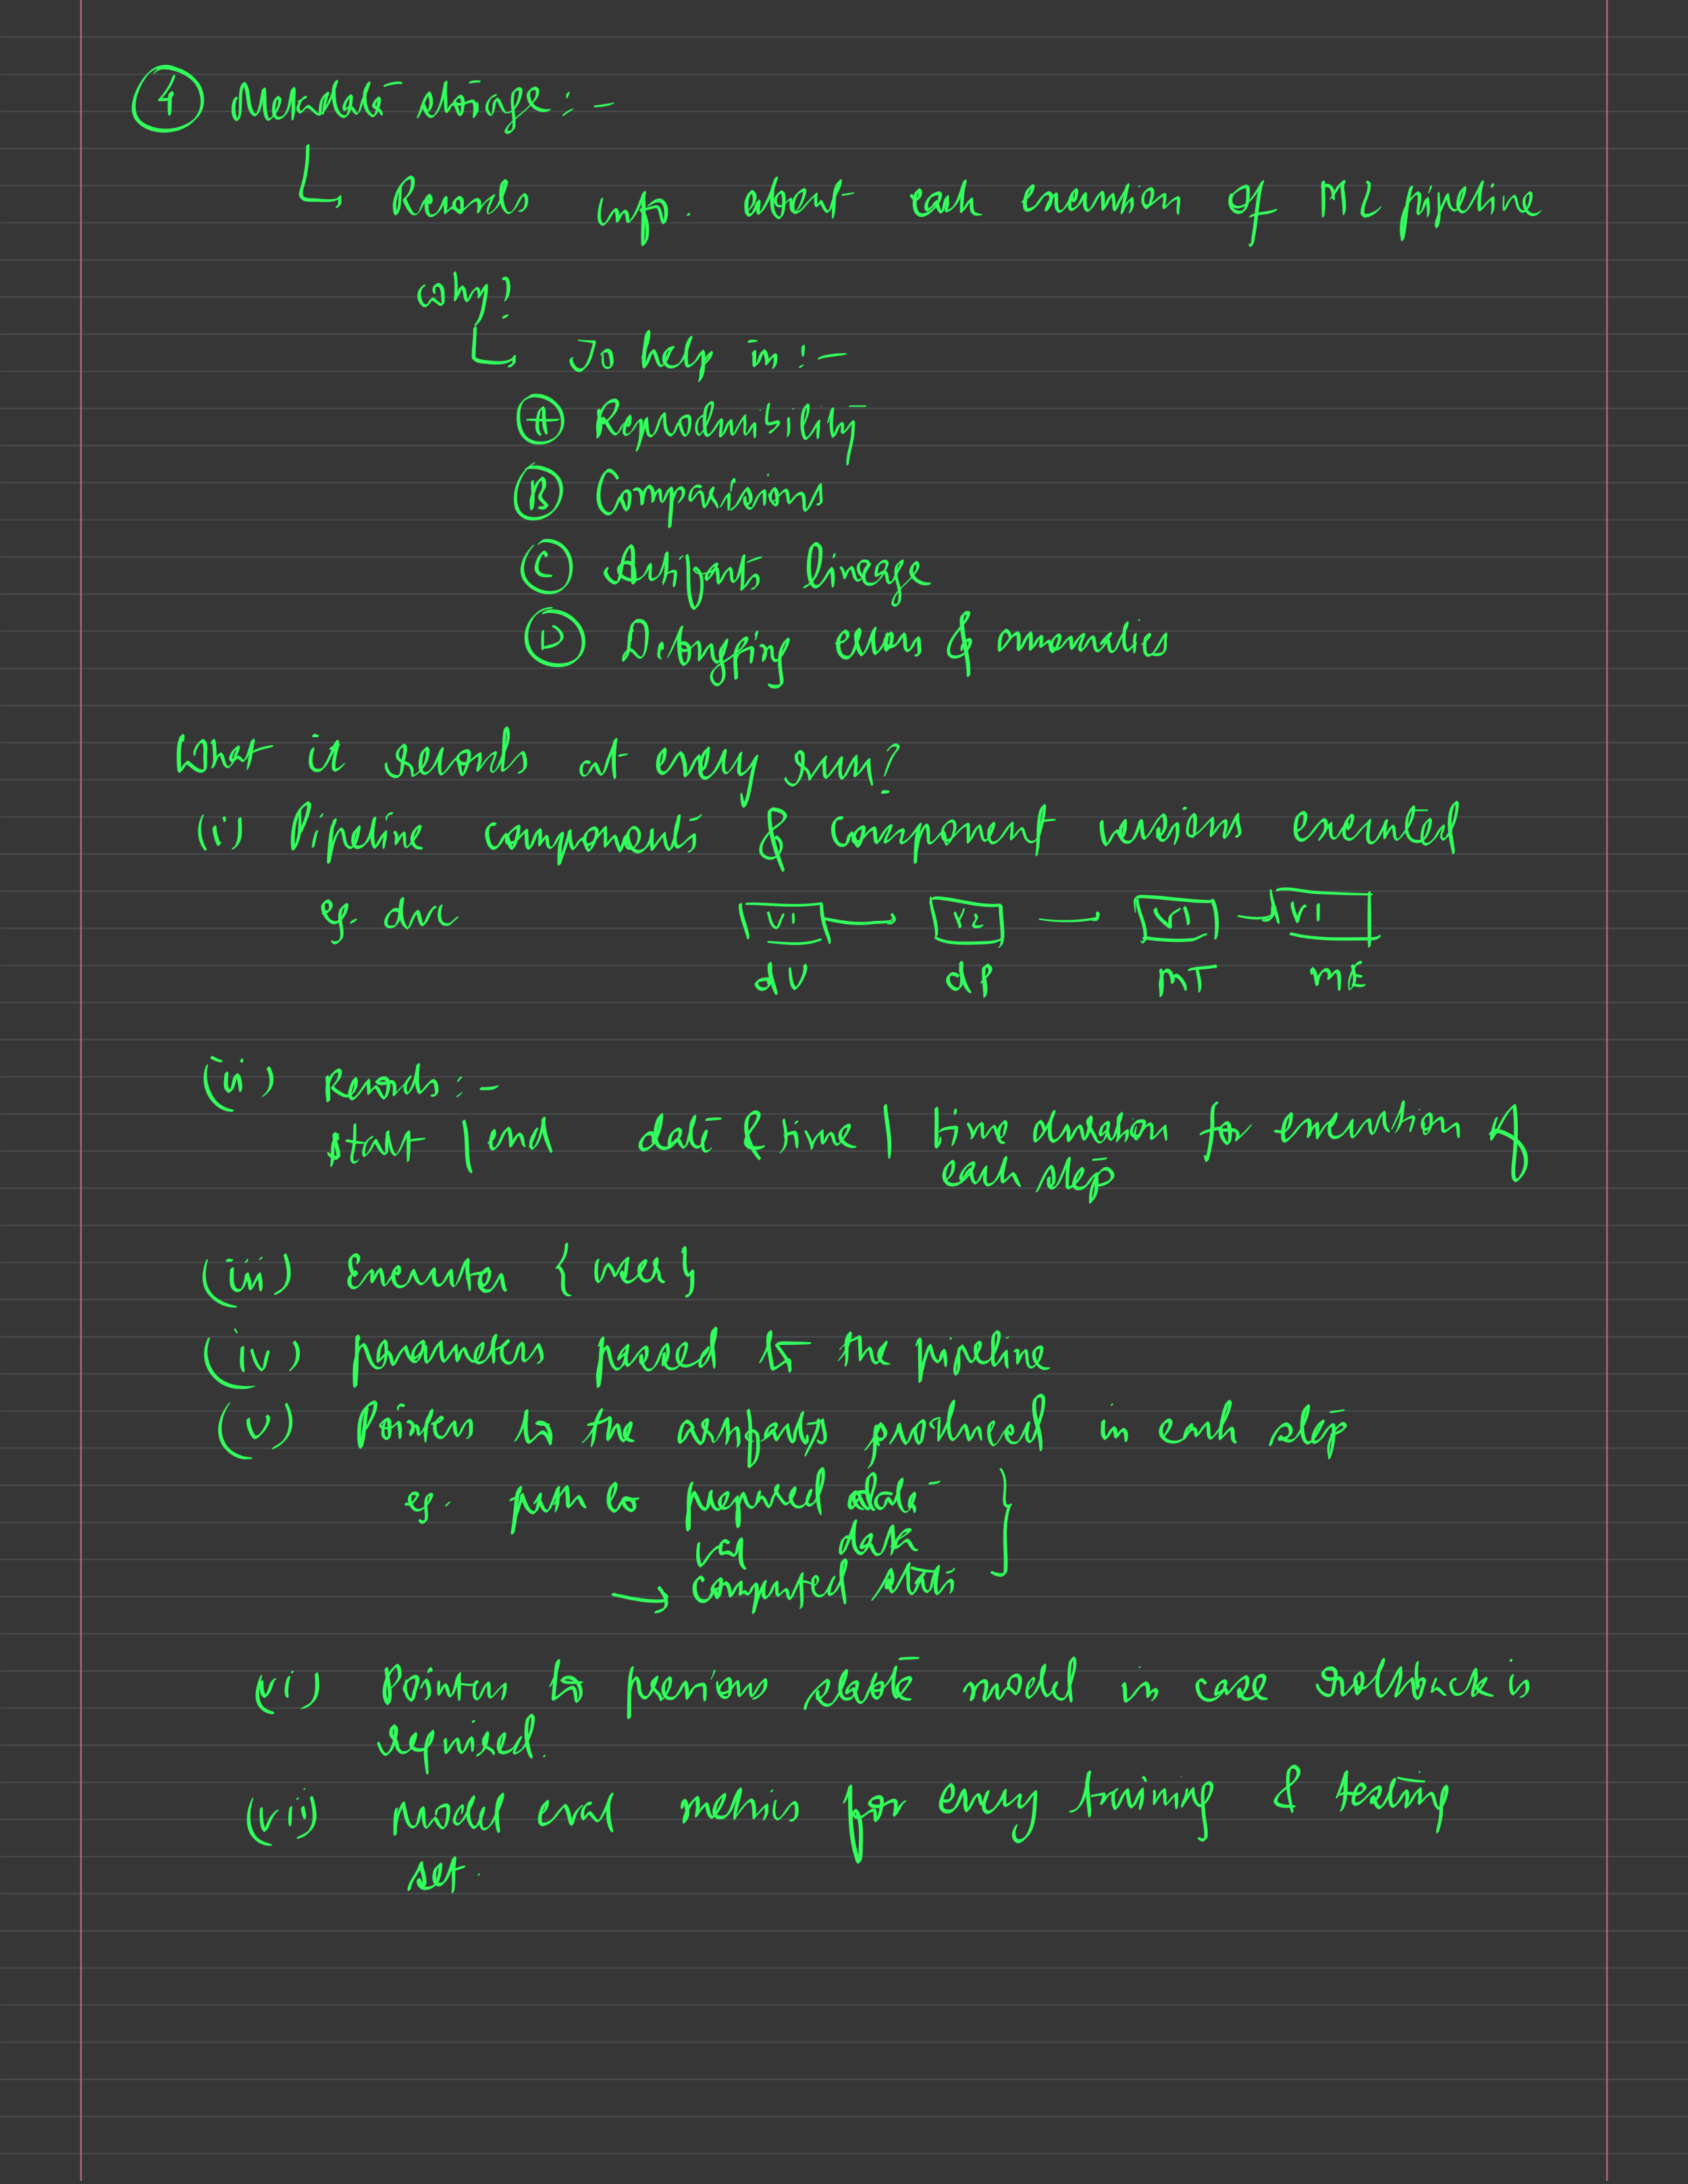 ④ Metadata storage :-
↳ Records info. about each execution of ML pipeline
why?
↳ To help in :-
Ⓐ Reproducibility
Ⓑ Comparisions
Ⓒ Artifacts lineage
Ⓓ Debugging errors & anomalies
What it records at every run?
(i) Pipeline components & component versions executed
eg. dvc V1 → V2 → V1 → V1
dV dP MT ME
(ii) Records :-
start | end date & time | time duration for execution of
each step
(iii) Executor {user}
(iv) parameters passed to the pipeline
(v) Pointers to the artifacts produced in each step
eg. path to prepared data
val data
→ computed stats
(vi) Pointers to previous stable model in case rollback is
required.
(vii) Model eval metrics for every training & testing
set.